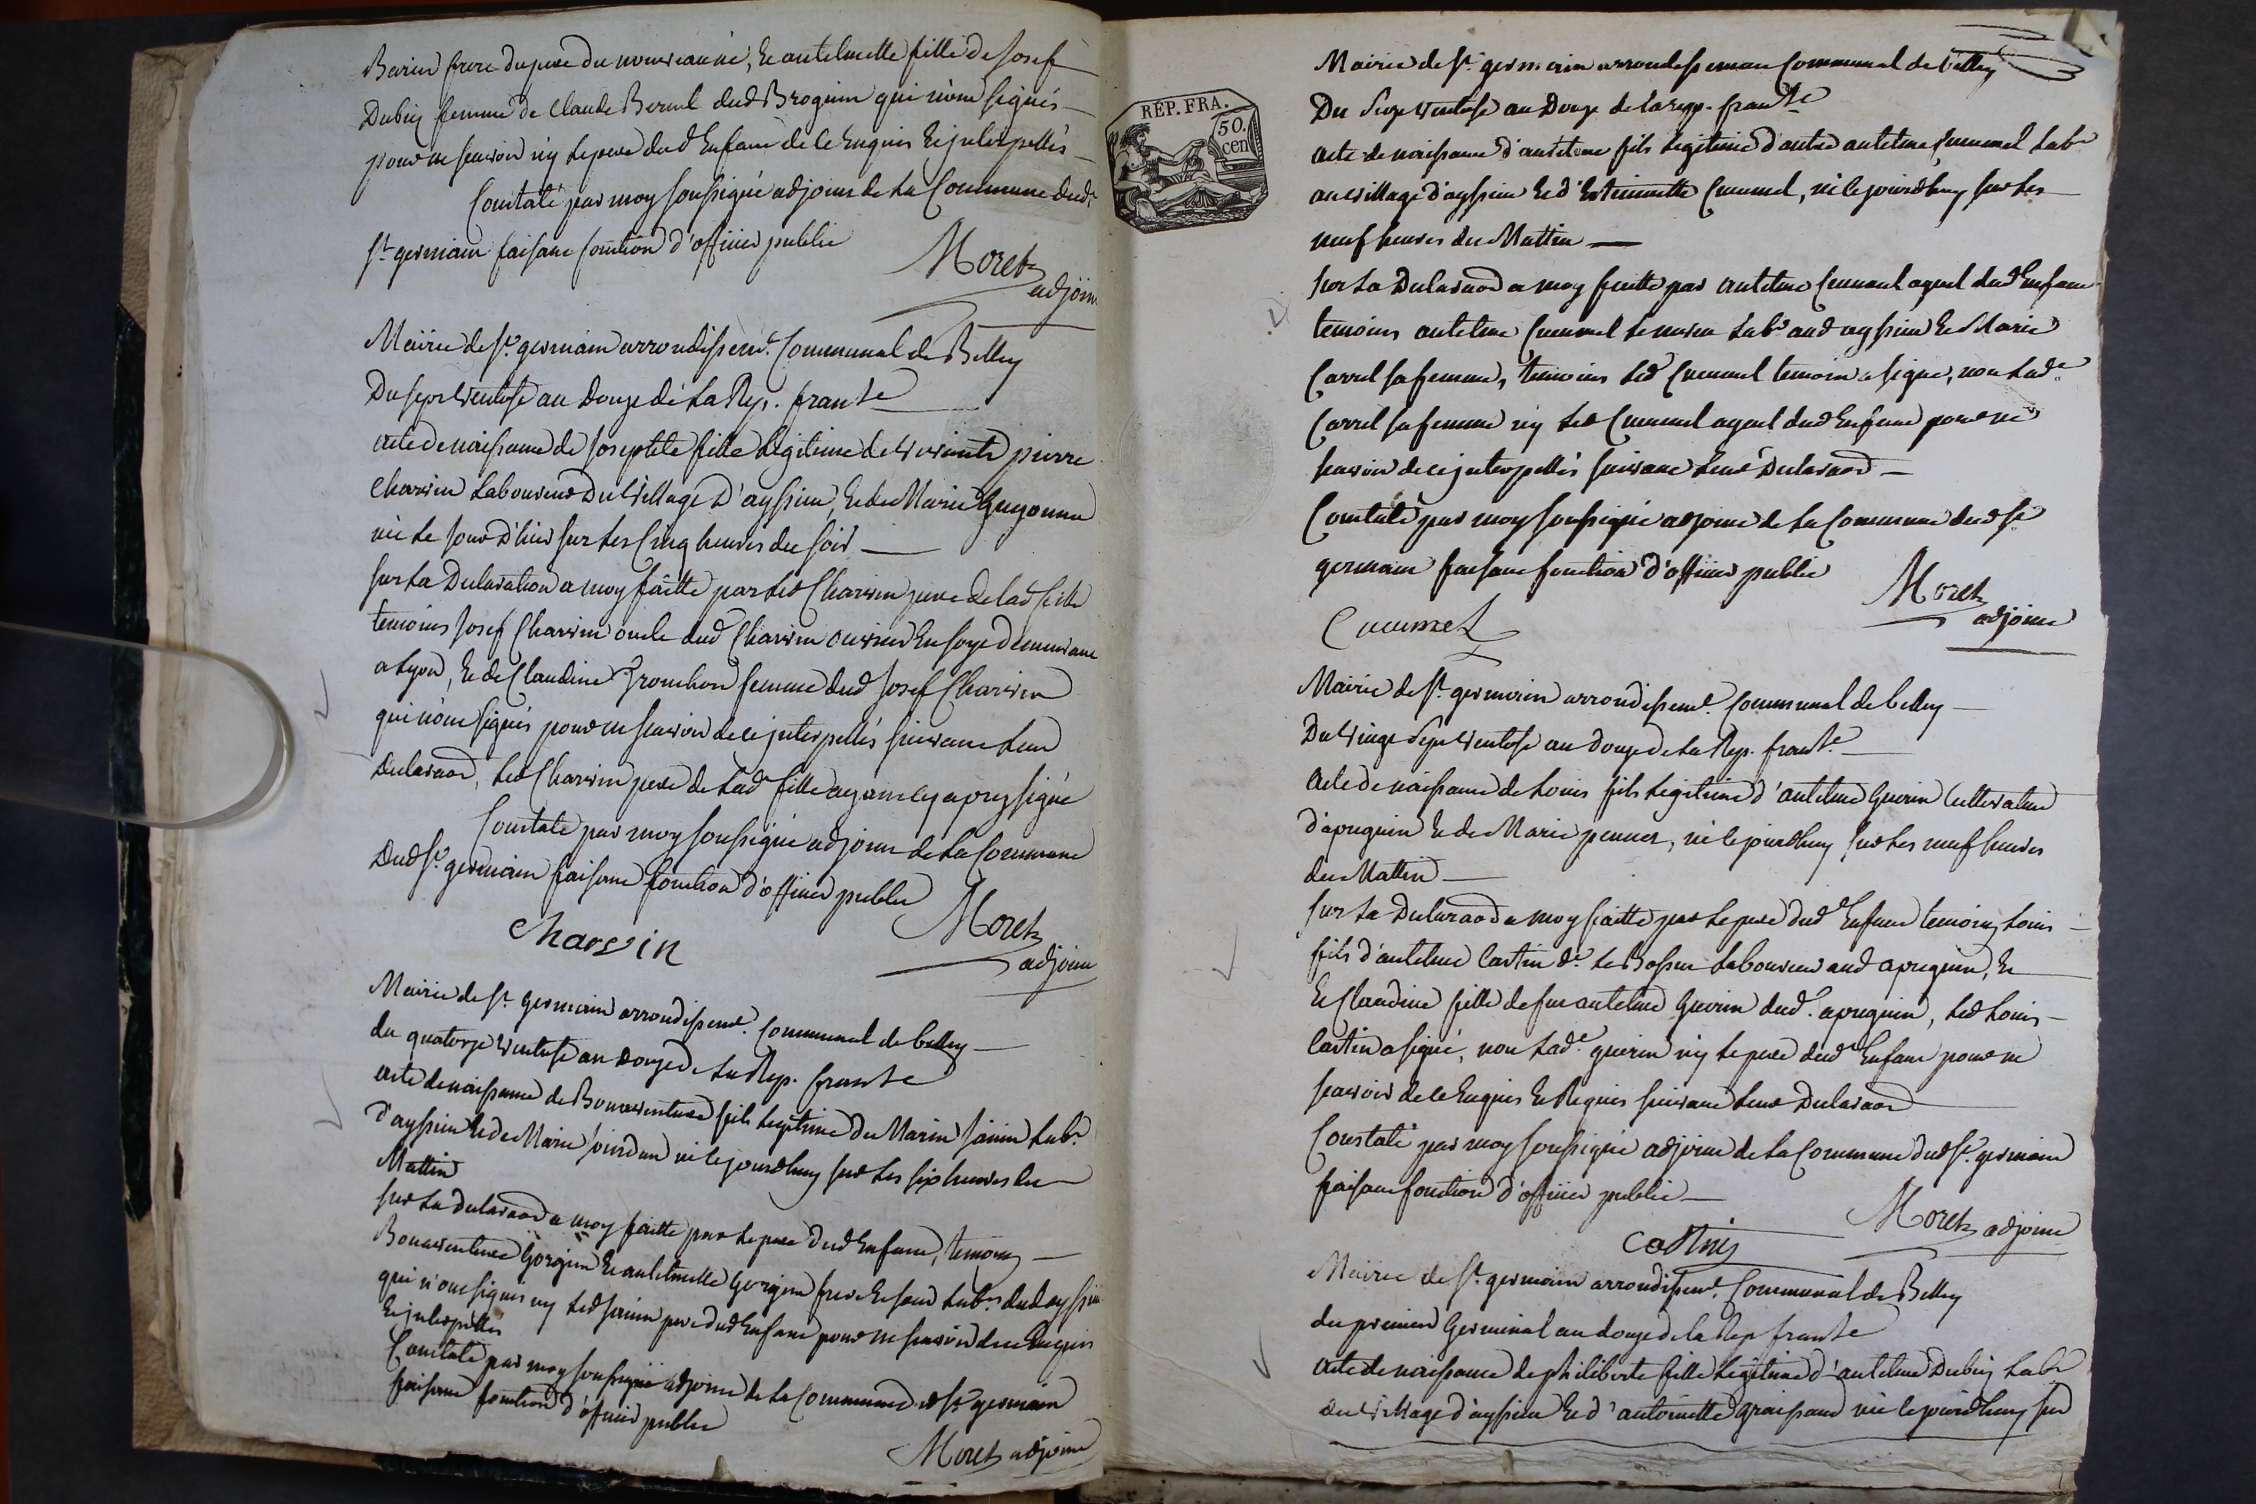 frere du pere du nouveau né, Et antelmette fille de Josef
Dubiez femme de Claude dud Brognin qui nont signés
pour ne scavoir ny le pere dud Enfant de ce Enquis Et jnterpellés
Constaté par moy soussigné adjoint de la Commune dud.
St germain faisant fonction d'officier public
Moret
adjoint
Mairie de St germain arrondissemt. Communal de Belley
Du sept ventose an Douze de La Rep. franse
acte de naissance de Josephte fille legitime de pierre
Charvin Laboureur Du village D'ayssieu, Et de Marie Guyonne
née Le Jour D'hier sur Les Cinq heures du soir
sur La Declaration a moy faitte par Led Charvin pere de lad fille
temoins Josef Charvin oncle dud Charvin ouvrier En soye demeurant
a Lyon, Et de Claudine femme dud Josef Charvin
qui n'ont signés pour ne scavoir de ce jnterpellés suivant Leur
Declaraon, Led Charvin pere de Lad fille ayant cy apres signé
Constaté par moy soussigné adjoint de la Commune
Dud St germain faisant fonction d'officier public
Moret
Charvin
adjoint
Mairie de St germain arrondissemt. Communal de belley
du quatorze ventose an douze de La Rep. franse
acte de naissance de Bonaventure fils legitime de Marin Janin Labr.
d'ayssieu Et de Marie né le jourdhuy sur Les six heures du
Mattin
sur La Declaraon a moy faitte par Le pere dud Enfant, temoins
Bonaventure Gorgin Et antelmette Gorgin frere Et soeur Labrs dud ayssieu
qui n'ont signés ny Led Janin pere dud Enfant pour ne scavoir de ce Enquis
Et jnterpellés
Constaté par moy soussigné adjoint de La Commune d St germain
faisant fonction d'officier public
Moret adjoint
REP. FRA.
50.
cen
Mairie de St germain arrondissement Communal de belley
Du Seize ventose an Douze de la rep. franse
acte de naissance d'antelme fils legitime d'autre antelme Cuumel Labr
au village d'ayssieu Et d'Estiennette Cuumel, né le jourdhuy sur Les
neuf heures du Mattin
sur La Declaraon a moy faitte par antelme Cuumel ayeul dud Enfant
temoins antelme Cuumel Labr aud ayssieu Et Marie
Carrel sa femme, temoins Led Cuumel temoin a signé, non Lade
Carrel sa femme ny Led Cuumel ayeul dud Enfant pour ne
scavoir de ce jnterpellés suivant Leur Declaraon
Constaté par moy soussigné adjoint de La Commune dud St
germain faisant fonction d'officier public
Moret
Cuumel
adjoint
Mairie de St germain arrondissemt. Communal de belley
Du vingt Sept ventose an douze de La Rep. franse
acte de naissance de Louis fils legitime d'antelme Guerin Cultivateur
d'apreguin Et de Marie né le jourdhuy sur Les neuf heures
du Mattin
sur La Declaraon a moy faitte par Le pere dud Enfant temoins Louis
fils d'antelme Castin dt. Le Bossu Laboureur aud apreguin, Et
Et Claudine fille de feu antelme Guerin dud. apreguin, Led Louis
Castin a signé, non Lade. guerin ny Le pere dud Enfant pour ne
scavoir de ce Enquis Et Requis suivant Leur Declaraon
Constaté par moy soussigné adjoint de La Commune dud St. germain
faisant fonction d'officier public
Moret adjoint
Mairie de St. germain arrondissemt. Communal de Belley
du premier Germinal an douze de la Rep franse
acte de naissance de philiberte fille legitime d'antelme Dubiez Labr
au village d'ayssieu Et d'antoinette née le jourdhuy sur